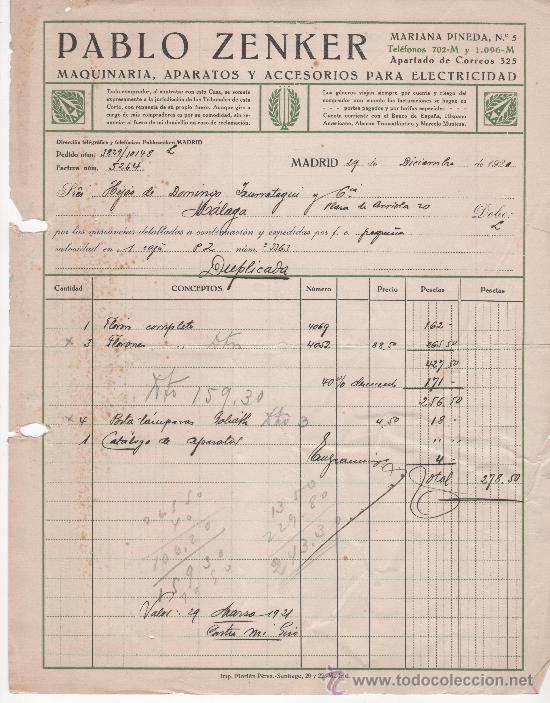 PABLO ZENKER
MARIANA PINEDA, N.º 5
Teléfonos 702-M y 1.096-M
Apartado de Correos 325
MAQUINARIA, APARATOS Y ACCESORIOS PARA ELECTRICIDAD
Todo comprador, al contratar con esta Casa, se somete
expresamente a la jurisdicción de los Tribunales de esta
Corte, con renuncia de su propio fuero. Aunque giro a
cargo de mis compradores es por su comodidad, sin re-
nunciar al fuero de mi domicilio en caso de reclamación.
Los géneros viajan siempre por cuenta y riesgo del
comprador aun cuando las facturaciones se hagan en
portes pagados y por tarifas especiales
Cuenta corriente con el Banco de España, Hispano
Americano, Aleman Transatlántico y
Dirección telegráfica y telefónica: MADRID
Pedido núm. 3829/10148 L
Factura núm. 5264
MADRID 29 de Diciembre de 1920
Hijos de Domingo y Cía
Málaga
Plaza de Arriola 20
Debe:
L
por las mercancías detalladas a continuación y expedidas por f. c. pequeña
velocidad en 1 caja P Z núm. 3363
Duplicada
Cantidad CONCEPTOS Número Precio Pesetas Pesetas
1 Florón completo 4069 162 -
x 3 Florones " Dto 4052 88,50 265.50
427.50
40% descuento 171 -
Dto 159.30
256.50
x 4 Porta lámparas Goliath Dto 3 4,50 18 -
1 Catálogo de aparatos " "
4 -
Total 278.50
265 50
40
106.20
159 30
13 50
229.80
243.30
Valor: 29 Marzo - 1921
Contra mi Giro
Imp. Florién Pérez.-Santiago, 20 y 22-Madrid
todocoleccion.net